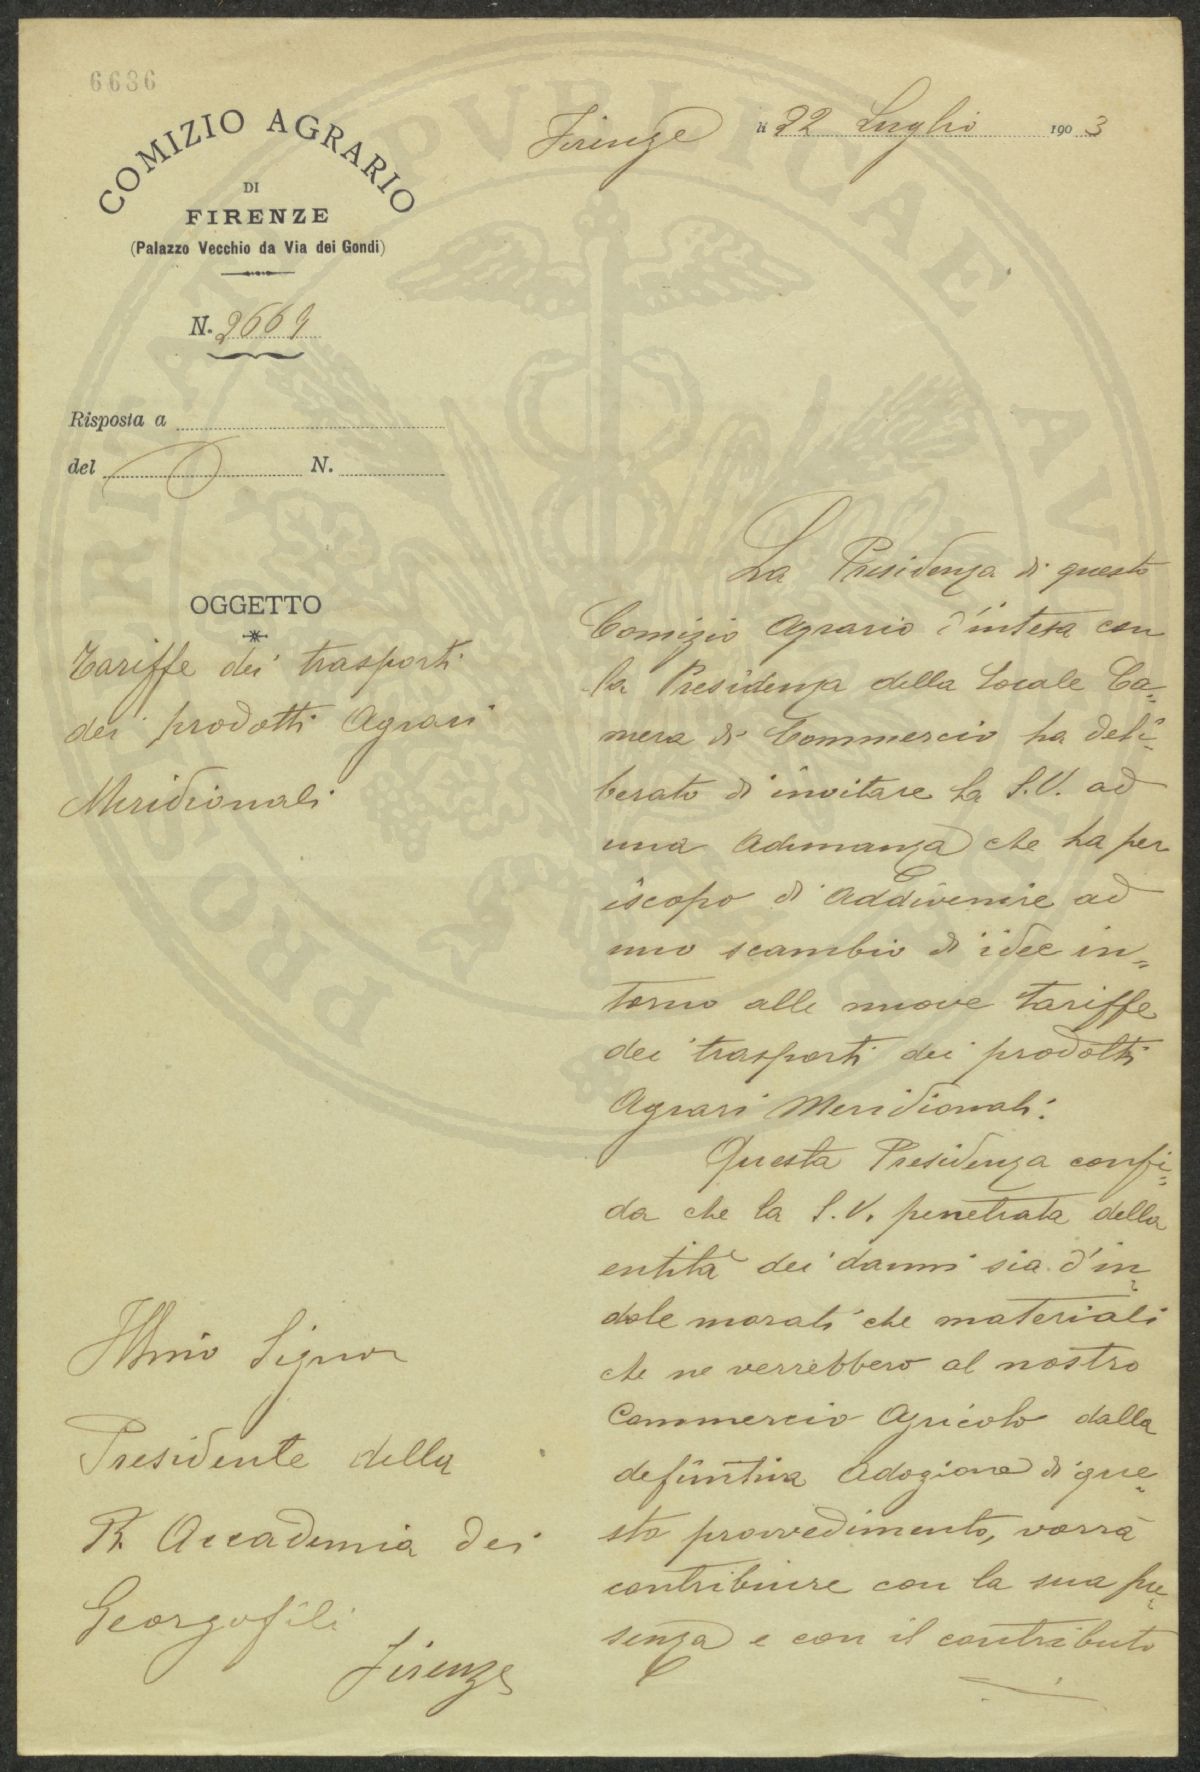 6636
COMIZIO AGRARIO
DI
FIRENZE
(Palazzo Vecchio da Via dei Gondi)
N. 2669
Firenze li 22 Luglio 1903
Risposta a
del N.
OGGETTO
Tariffe dei trasporti
dei prodotti Agrari
Meridionali
La Presidenza di questo
Comizio Agrario d'intesa con
la Presidenza della Locale Ca=
mera di Commercio ha deli=
berato di invitare la S.V. ad
una Adunanza che ha per
iscopo di Addivenire ad
uno scambio di idee in=
torno alle nuove tariffe
dei trasporti dei prodotti
Agrari Meridionali.
Questa Presidenza confi=
da che la S.V. penetrata della
entità dei danni sia d'in=
dole morali che materiali
che ne verrebbero al nostro
Commercio Agricolo dalla
definitiva Adozione di que=
sto provvedimento, vorrà
contribuire con la sua pre=
senza e con il contributo
Illmo Signor
Presidente della
R. Accademia dei
Georgofili
Firenze